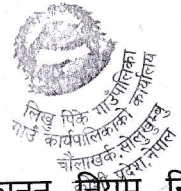 लिखु पिके गाउँपालिका
गाउँ कार्यपालिकाको कार्यालय
चौलाखर्क, सोलुखुम्बु
प्रदेश, नेपाल